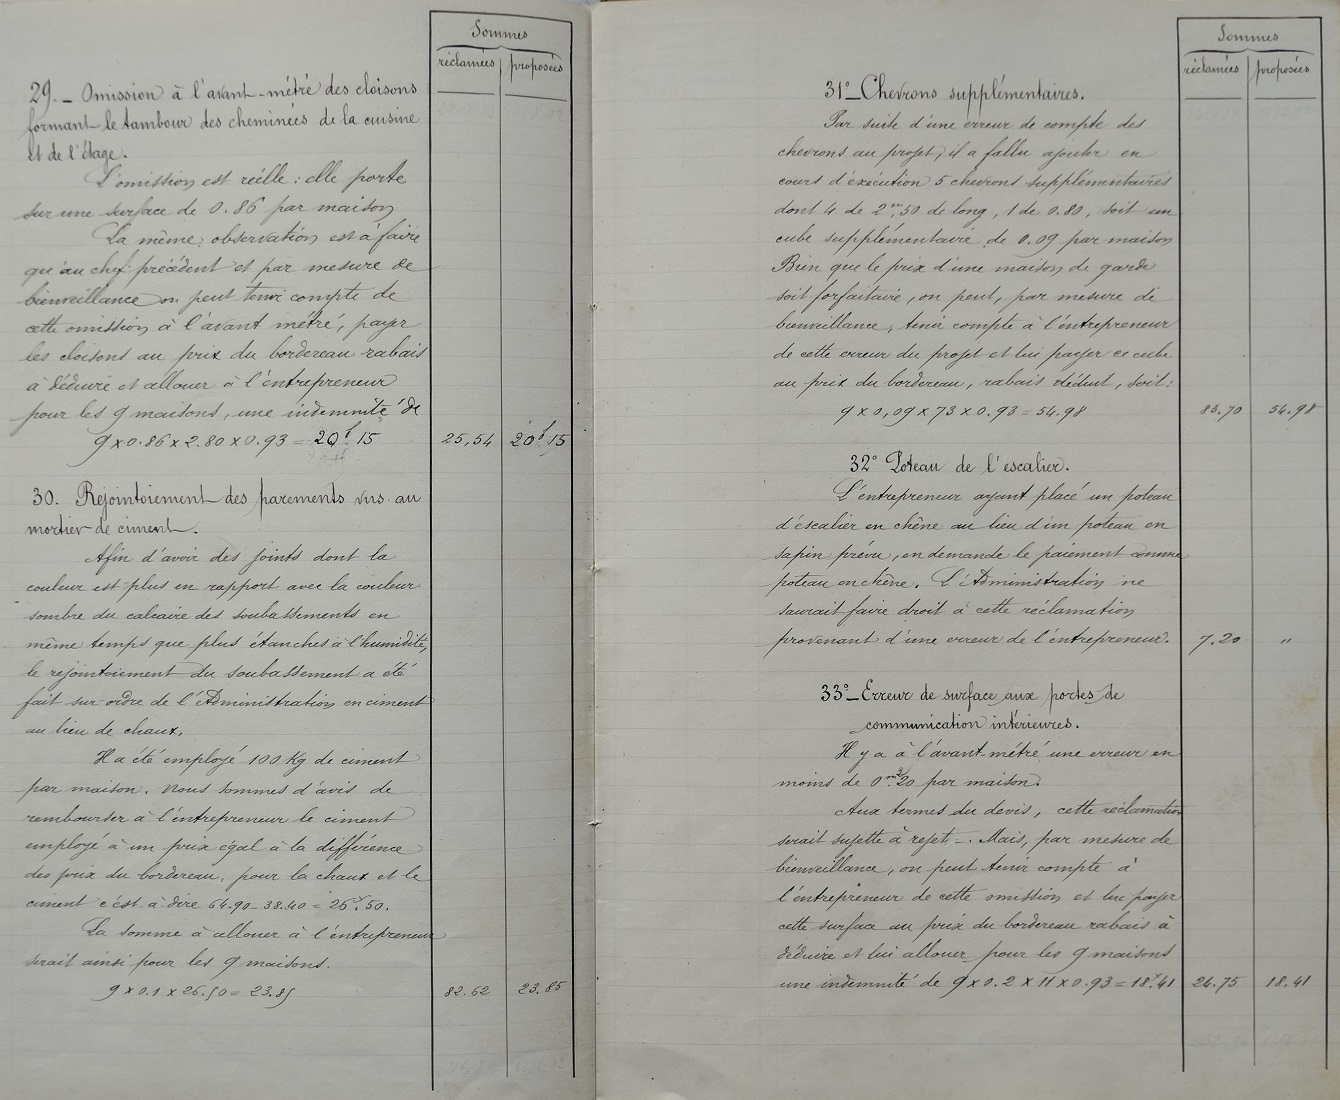 Sommes
réclamées proposées
29. – Omission à l'avant-métré des cloisons
formant le tambour des cheminées de la cuisine
et de l'étage.
L'omission est réelle : elle porte
sur une surface de 0.86 par maison
La même observation est à faire
qu'au chef précédent et par mesure de
bienveillance on peut tenir compte de
cette omission à l'avant métré, payer
les cloisons au prix du bordereau rabais
à déduire et allouer à l'entrepreneur
pour les 9 maisons, une indemnité de
9 x 0.86 x 2.80 x 0.93 = 20f.15 25,54 20f.15
30. Rejointoiement des parements vus au
mortier de ciment.
Afin d'avoir des joints dont la
couleur est plus en rapport avec la couleur
sombre du calcaire des soubassements en
même temps que plus étanches à l'humidité,
le rejointoiement du soubassement a été
fait sur ordre de l'Administration en ciment
au lieu de chaux.
Il a été employé 100 Kg de ciment
par maison. Nous sommes d'avis de
rembourser à l'entrepreneur le ciment
employé à un prix égal à la différence
des prix du bordereau, pour la chaux et le
ciment c'est à dire 64.90 - 38.40 = 26f.50.
La somme à allouer à l'entrepreneur
serait ainsi pour les 9 maisons.
9 x 0.1 x 26.50 = 23.85 82.62 23.85
Sommes
réclamées proposées
31° – Chevrons supplémentaires.
Par suite d'une erreur de compte des
chevrons au projet, il a fallu ajouter en
cours d'exécution 5 chevrons supplémentaires
dont 4 de 2m,50 de long, 1 de 0.80, soit un
cube supplémentaire de 0.09 par maison
Bien que le prix d'une maison de garde
soit forfaitaire, on peut, par mesure de
bienveillance, tenir compte à l'entrepreneur
de cette erreur du projet et lui payer ce cube
au prix du bordereau, rabais déduit, soit :
9 x 0,09 x 73 x 0.93 = 54.98 83.70 54.98
32° Poteau de l'escalier.
L'entrepreneur ayant placé un poteau
d'escalier en chêne au lieu d'un poteau en
sapin prévu, en demande le paiement comme
poteau en chêne. L'Administration ne
saurait faire droit à cette réclamation
provenant d'une erreur de l'entrepreneur. 7.20 "
33° – Erreur de surface aux portes de
communication intérieures.
Il y a à l'avant-métré une erreur en
moins de 0m2.20 par maison.
Aux termes du devis, cette réclamation
serait sujette à rejet –. Mais, par mesure de
bienveillance, on peut tenir compte à
l'entrepreneur de cette omission et lui payer
cette surface au prix du bordereau rabais à
déduire et lui allouer pour les 9 maisons
une indemnité de 9 x 0.2 x 11 x 0.93 = 18f.41 24.75 18.41